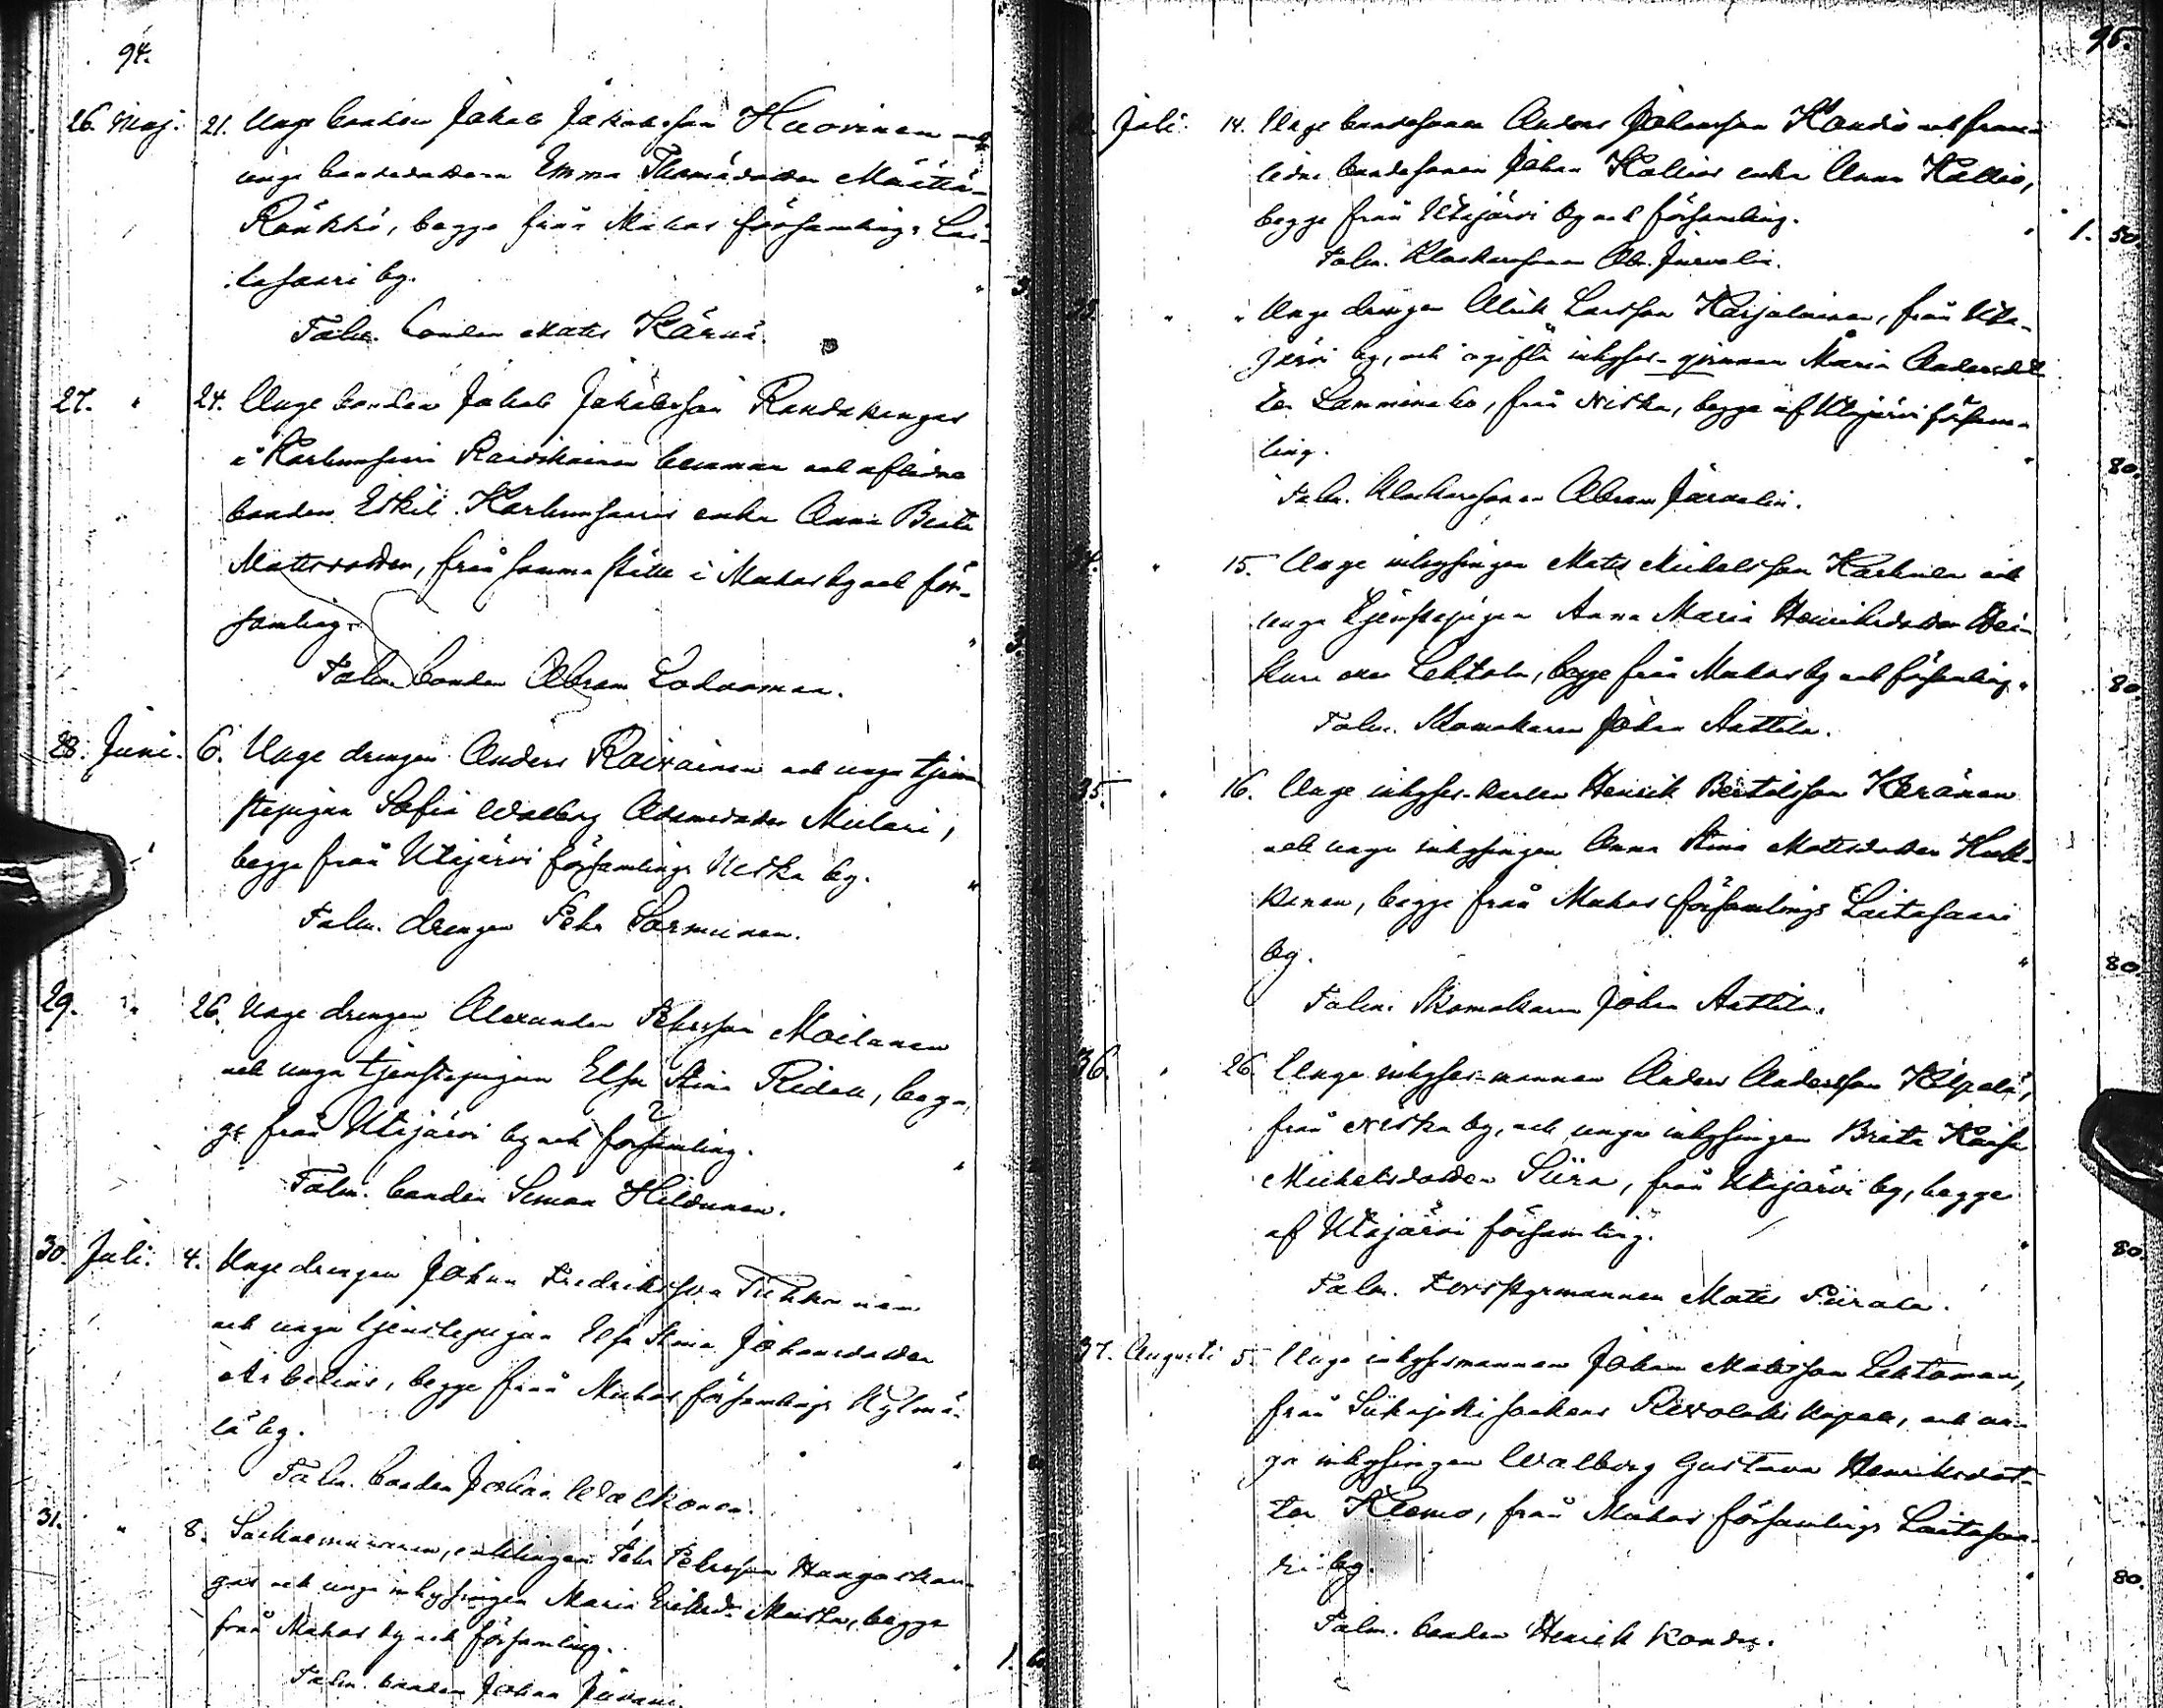 94.
26. Maj. 21. Unge bonden Jakob Jakobsson Huovinen och
unge bondedottern Emma Thomasdotter Määttä-
Räukkö, begge från Muhos församlings Lai-
tasaari by. " 3.
Talm. bonden Mats Kärnä.
27. " 24. Unge bonden Jakob Jakobsson Randakangas
å Karhunsaari benämnan och aflidne
bonden Eskil Karhunsaaris enka Anna Beata
Mattsdotter, från samma ställe i Muhos by och för-
samling. " 3.
Talm. bonden Abram Lovaaman.
28. Juni. 6. Unge drengen Anders Raivainen och unga tjen-
stepigan Sofia Walborg Adamsdotter Mulari,
begge från Utajärvi församlings Niska by. "
Talm. drengen Pehr Sarmunen.
29. " 26. Unge drengen Alexander Pehrsson Moilanen
och unga tjenstepigan Elsa Stina Riden, beg-
ge från Utajärvi by och församling. "
Talm. bonden Simon Hildunen.
30. Juli. 4. Unge drengen Johan Fredriksson Tikkanen
och unga tjenstepigan Elsa Stina Johansdotter
Arbelius, begge från Muhos församlings Kylmä-
lä by. "
Talm. bonden Johan Walkonen.
31. " 8. Socknemuraren, enklingen Pehr Pehrsson Hangaskan-
gas och unga inhysingen Maria Eriksd. Musta, begge
från Muhos by och församling. " 1. 60
Talm. bonden Johan
95.
Juli. 14. Unge bondesonen Anders Johansson Kondio och fram-
lidne bondesonen Johan Kallios enka Anna Kallio,
begge från Utajärvi by och församling. " 1. 50.
Talm. Klockaresonen Abr. Järvelin.
" " Unge drengen Ulrik Larsson Karjalainen, från Uta-
järvi by, och ogifta inhyses-qvinnan Maria Andersdot-
ter Lamminaho, från Niska, begge af Utajärvi försam-
ling. " 80.
Talm. Klockaresonen Abram Järvelin.
" 15. Unge inhysingen Mats Mickelsson Karhula och
unga tjenstepigan Anna Maria Henriksdotter Hei-
kura Lehtola, begge från Muhos by och församling. " 80.
Talm. Skomakaren Johan Anttila.
35. " 16. Unge inhyses-karlen Henrik Bertilsson Keränen
och unga inhysingen Anna Stina Mattsdotter Huk-
kanen, begge från Muhos församlings Laitasaari
by. " 80.
Talm. Skomakaren Johan Anttila.
36. " 26. Unge inhyses-mannen Anders Andersson Kilpala,
från Niska by, och unga inhysingen Brita Kaisa
Mickelsdotter Siira, från Utajärvi by, begge
af Utajärvi församling. " 80.
Talm. Forsstyrmannen Mats Piirala.
37. Augusti 5. Unge inhysesmannen Johan Matsson Lehtomaa,
från Siikajoki sockens Revolaks kapell, och un-
ga inhysingen Walborg Gustava Henriksdot-
ter Klemo, från Muhos församlings Laitasaa-
ri by. " 80.
Talm. bonden Henrik Kondio.